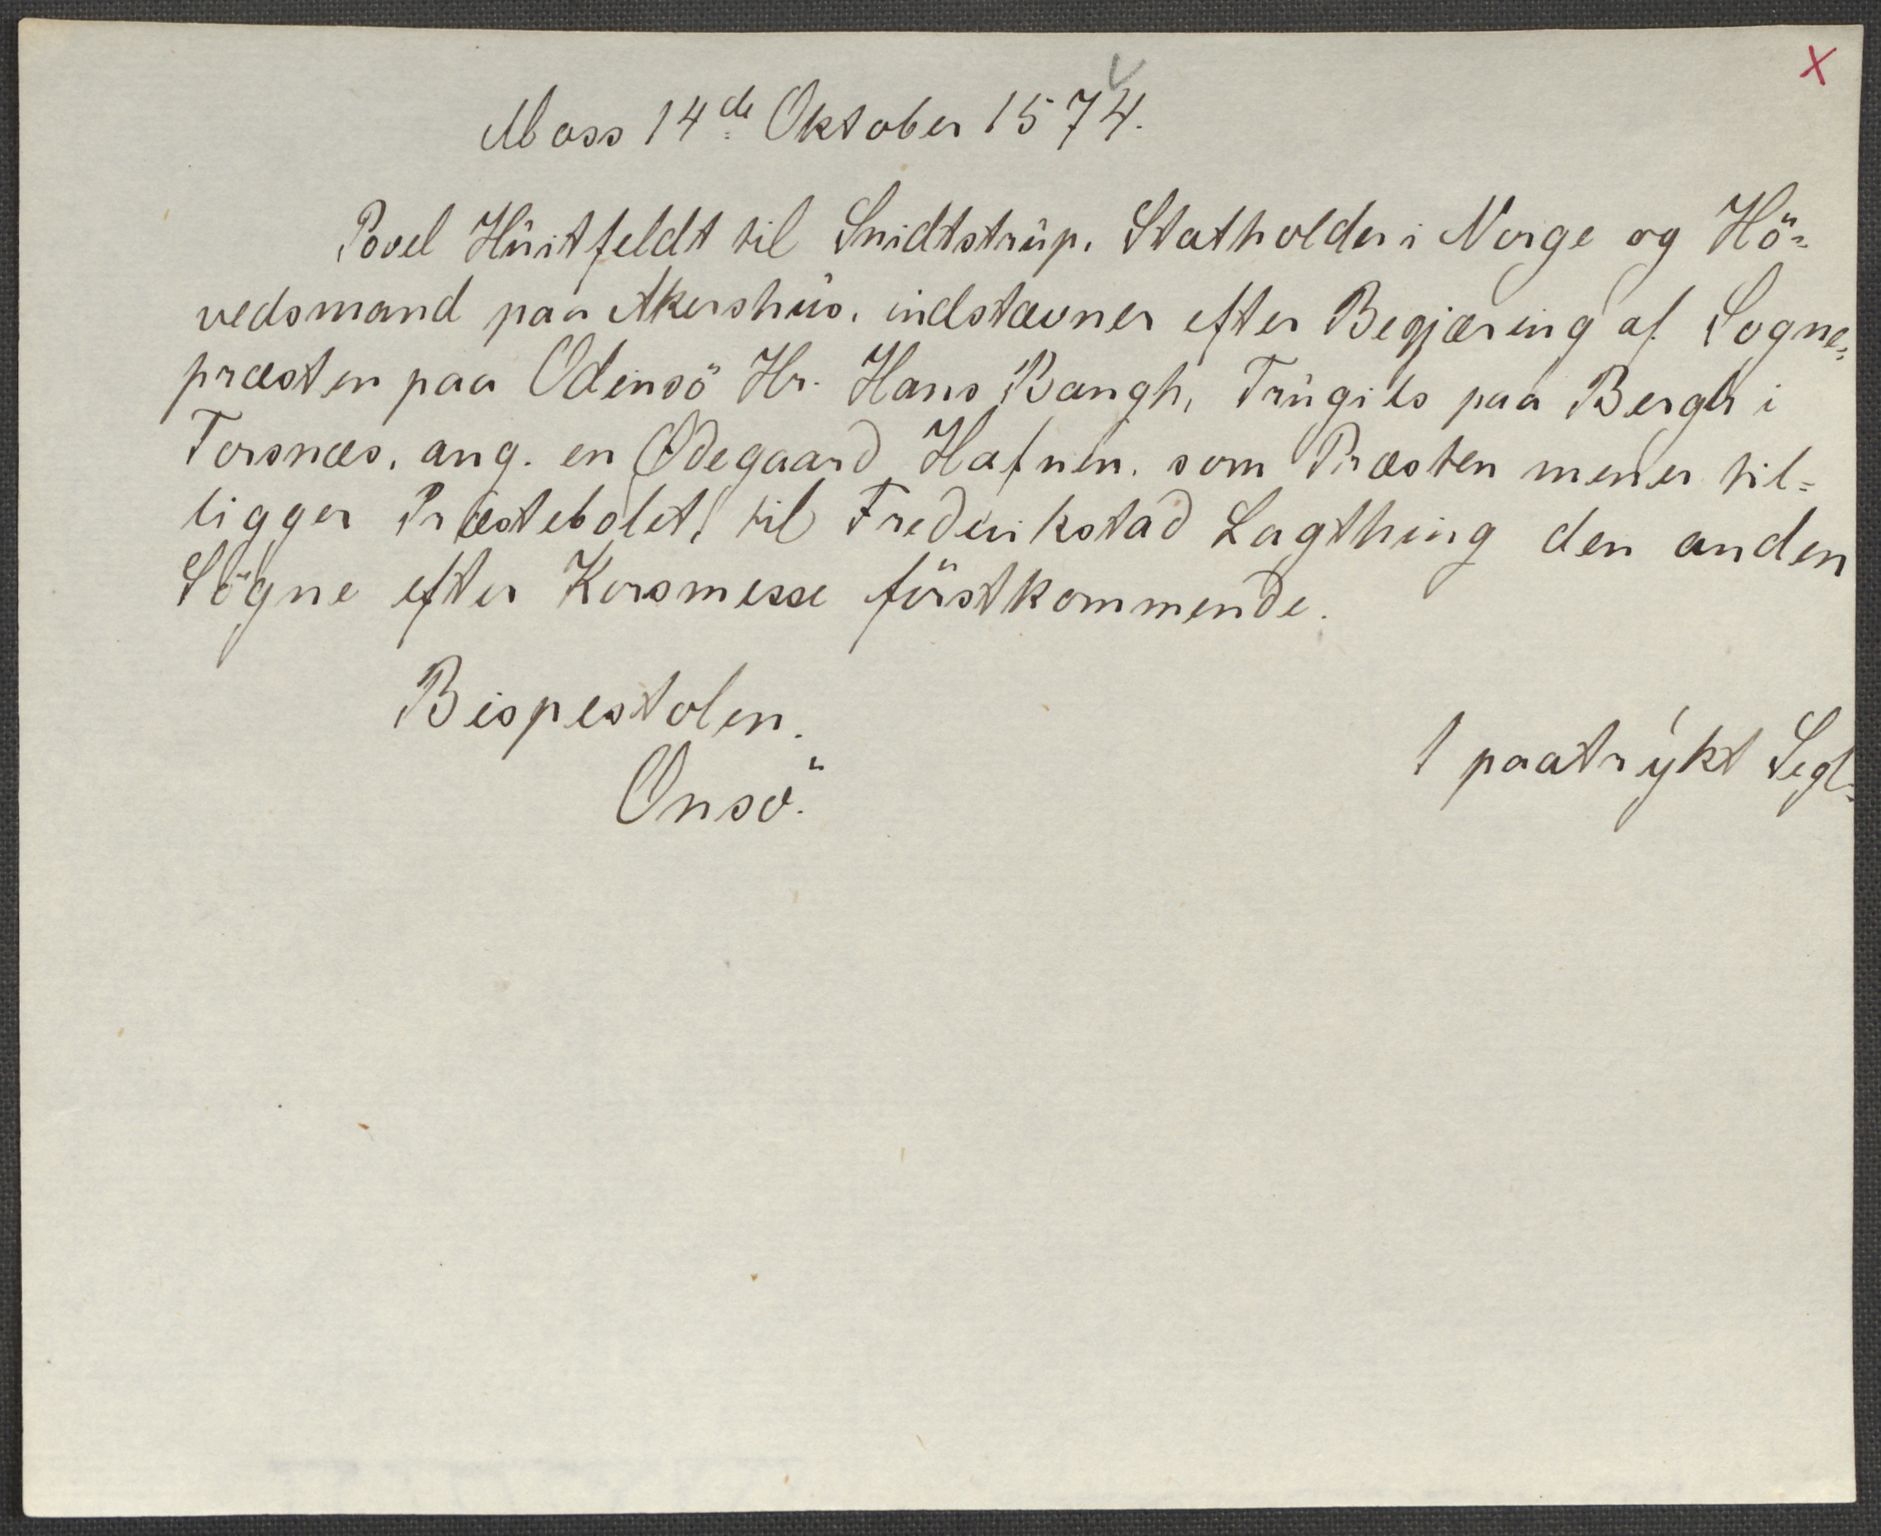 X
Moss 14de Oktober 1574.
Povel Hüitfeldt til Snidtstrüp, Statholder i Norge og Hö=
vedsmand paa Akershüs, indstævner efter Begjæring af Sogne=
præsten paa Odensö Hr. Hans Bangh, Trügils paa Bergh i
Torsnæs, ang. en Ødegaard Hafnen, som Præsten mener til=
ligger Præstebolet, til Frederikstad Lagthing den anden
Sögne efter Korsmesse förstkommende.
Bispestolen.
Onsö.
1 paatrykt Segl.